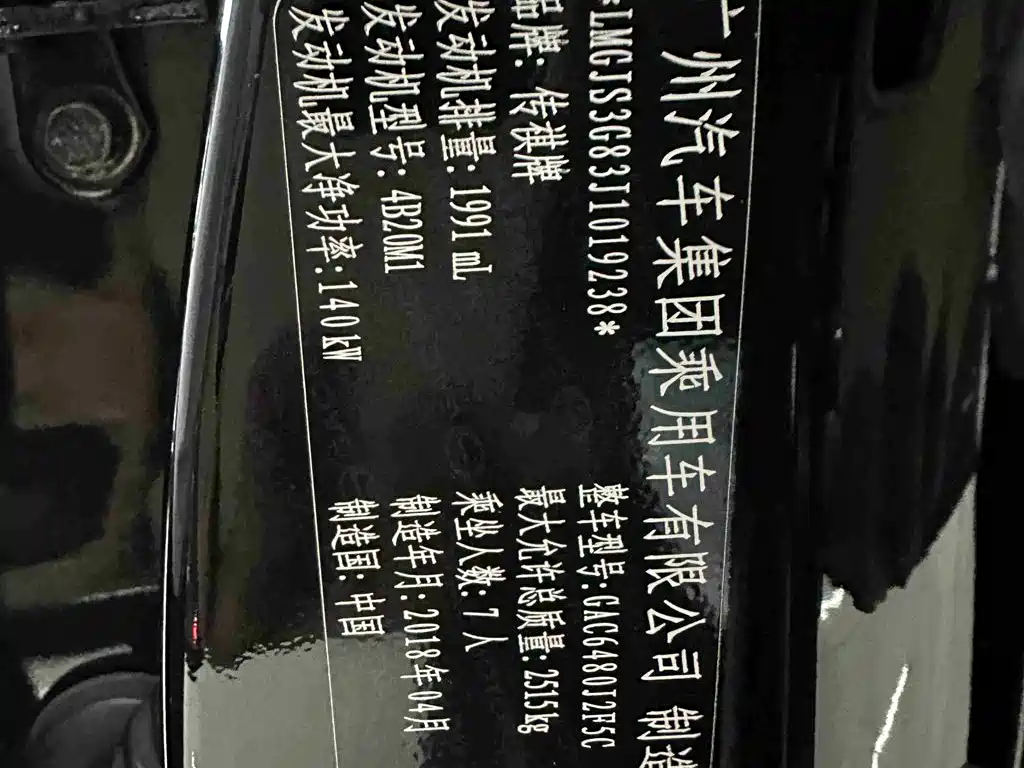 广州汽车集团乘用车有限公司 制造
*LMGJS3G83J1019238*
品牌: 传祺牌
整车型号:GAC6480J2F5C
发动机排量: 1991 mL
最大允许总质量:2515kg
发动机型号: 4B20M1
乘坐人数: 7 人
发动机最大净功率:140kW
制造年月: 2018年04月
制造国: 中国